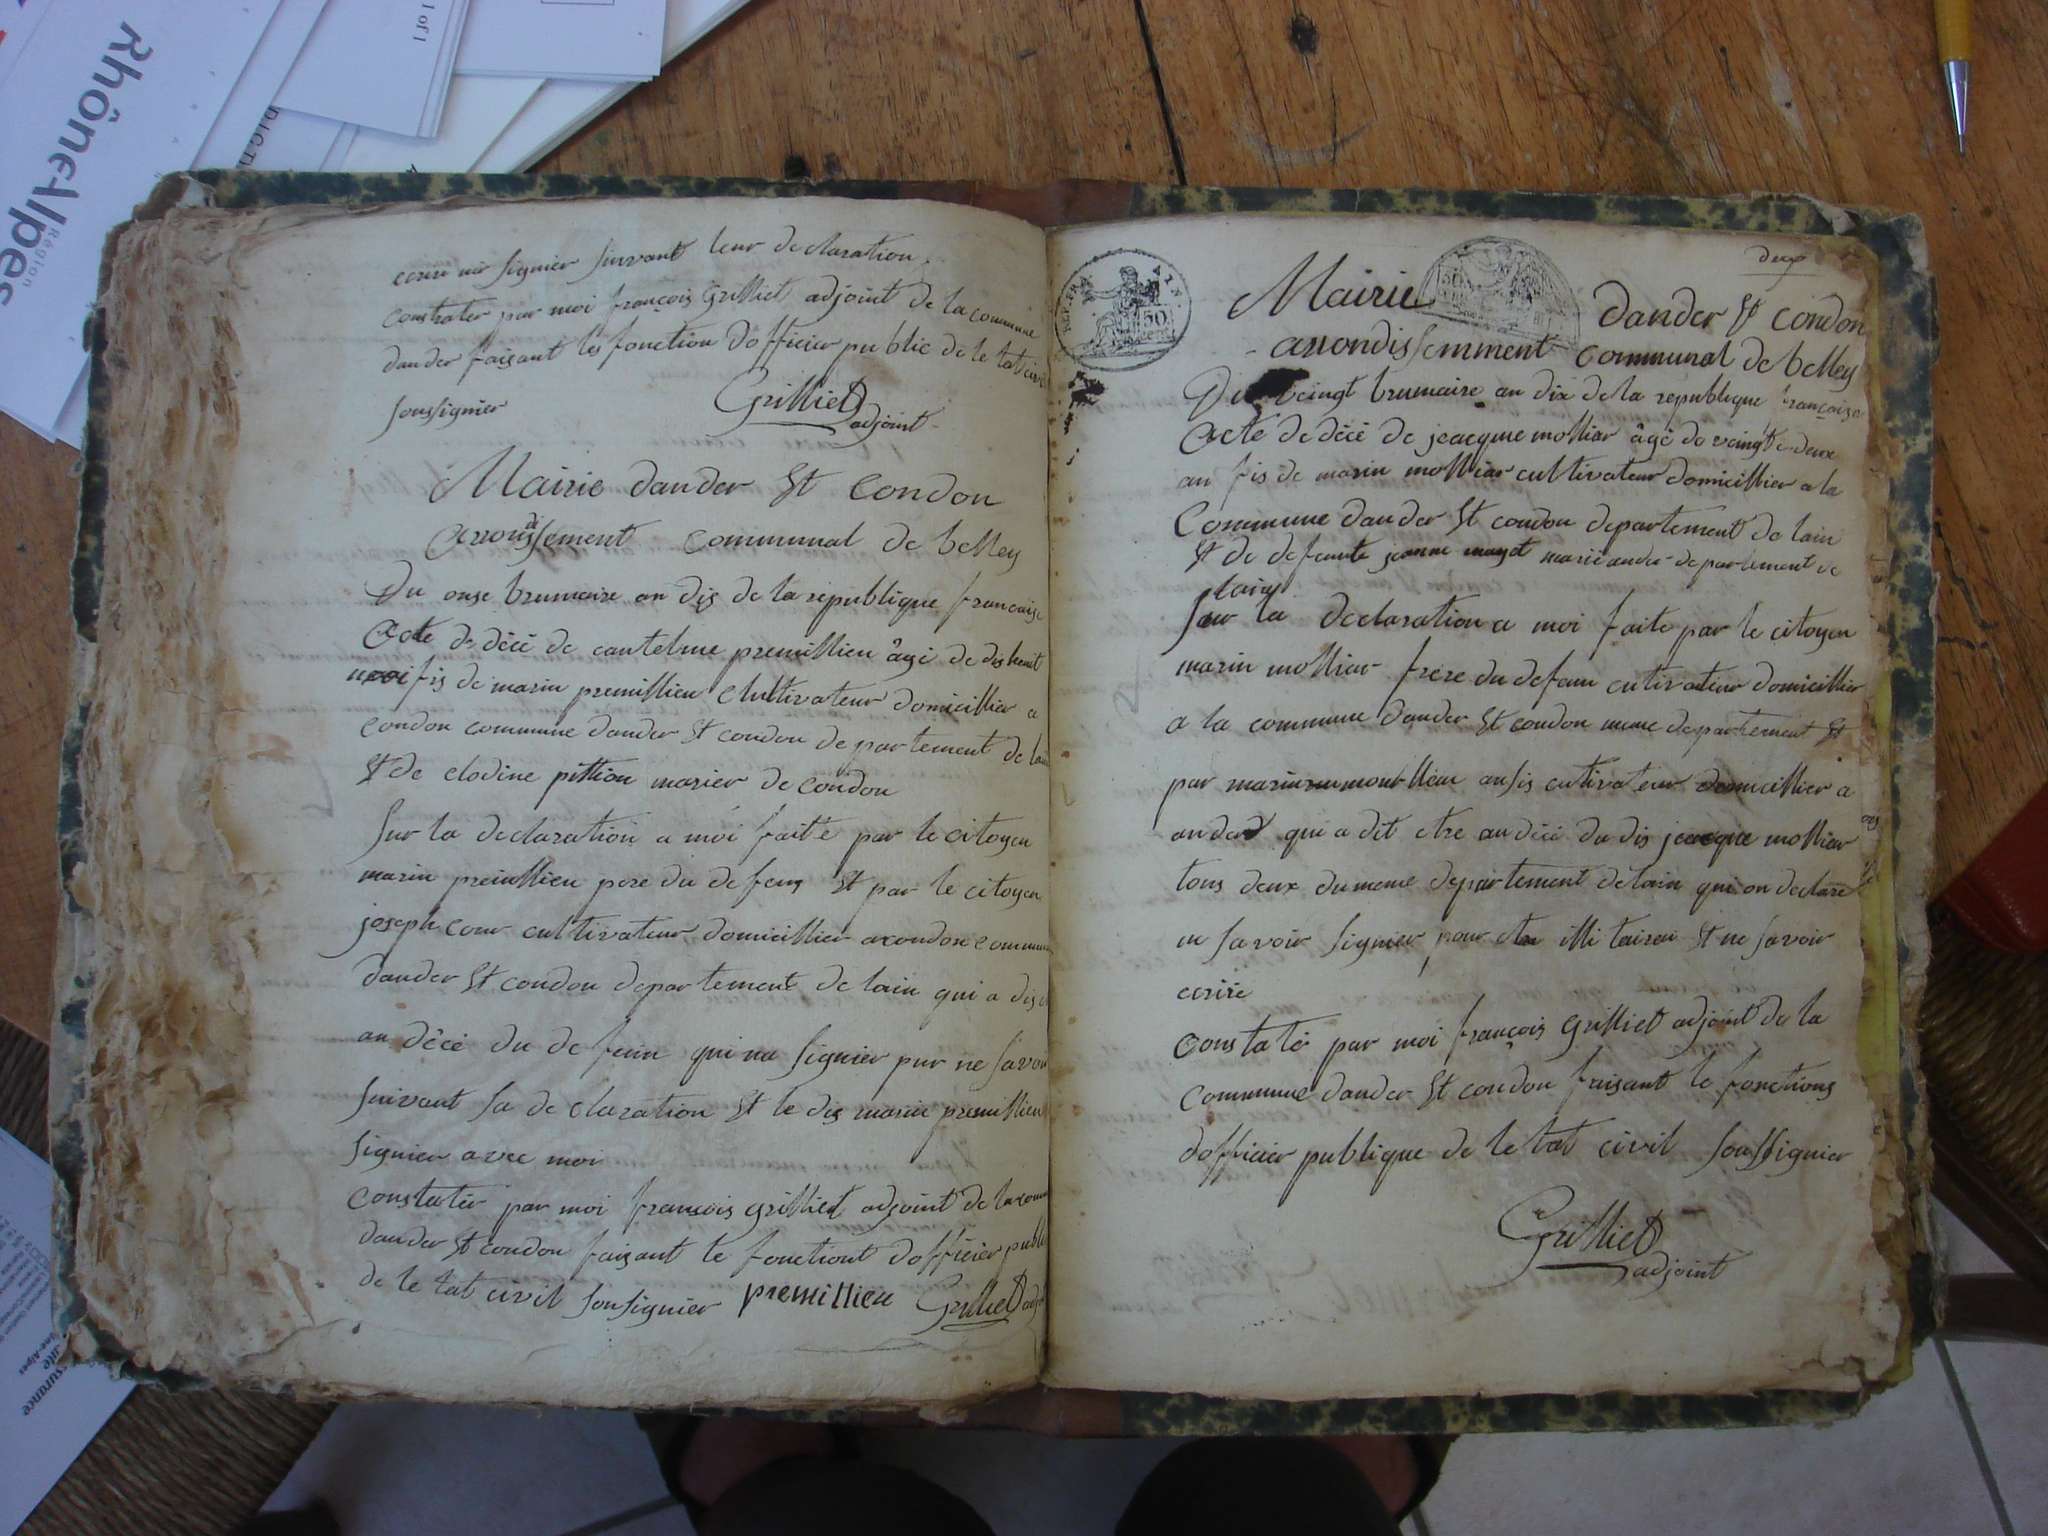 Rhône-Alpes
Région
1 of 1
ecrire ni signier suivant leur declaration
constater par moi françois Grilliet adjoint de la commune
dander faisant les fonction dofficier public de le tat civil
soussignier Grilliet
adjoint
Mairie dander St Condon
arrondissement communal de belley
Du onse brumaire an dis de la republique francaise
Acte de décé de cantelme premillieu âgé de dis heuit
moi fis de marin premillieu cultivateur domicillier a
condon commune dander St condon departement de lain
St de clodine pittion marier de condon
Sur la declaration a moi faite par le citoyen
marin premillieu pere du defeng St par le citoyen
joseph cour cultivateur domicillier a condon commune
dander St condon departement de lain qui a dis
au décé du defeun qui na signier pur ne savoir
suivant sa declaration St le dis marin premillieu
signier avec moi
constatér par moi francois grilliet adjoint de la comm
dander St condon faisant le fonctiont dofficier public
de le tat civil sousignier premillieu Grilliet adj
deux
REP. FRA
50
Mairie dander St condon
arrondissemment communal de belley
Du veingt brumaire an dix de la republique françoise
Acte de décé de jeacque mollier âgé de veingt deux
an fis de marin mollier cultivateur domicillier a la
Commune dander St condon departement de lain
St de defeunte jeanne mayet marié ander departement de
lain
Sur la declaration a moi faite par le citoyen
marin mollier frere du defeun cutivateur domicillier
a la commune dander St condon meme departement St
par cutivateur domicillier a
ander qui a dit etre au décé du dis jeacque mollier
tous deux du meme departement de lain qui on declaré
ne savoir signier pour etre illi taireu St ne savoir
ecrire
Constaté par moi françois Grilliet adjoint de la
Commune dander St condon faisant le fonctions
dofficier publique de le tat civil soussignier
Grilliet
adjoint